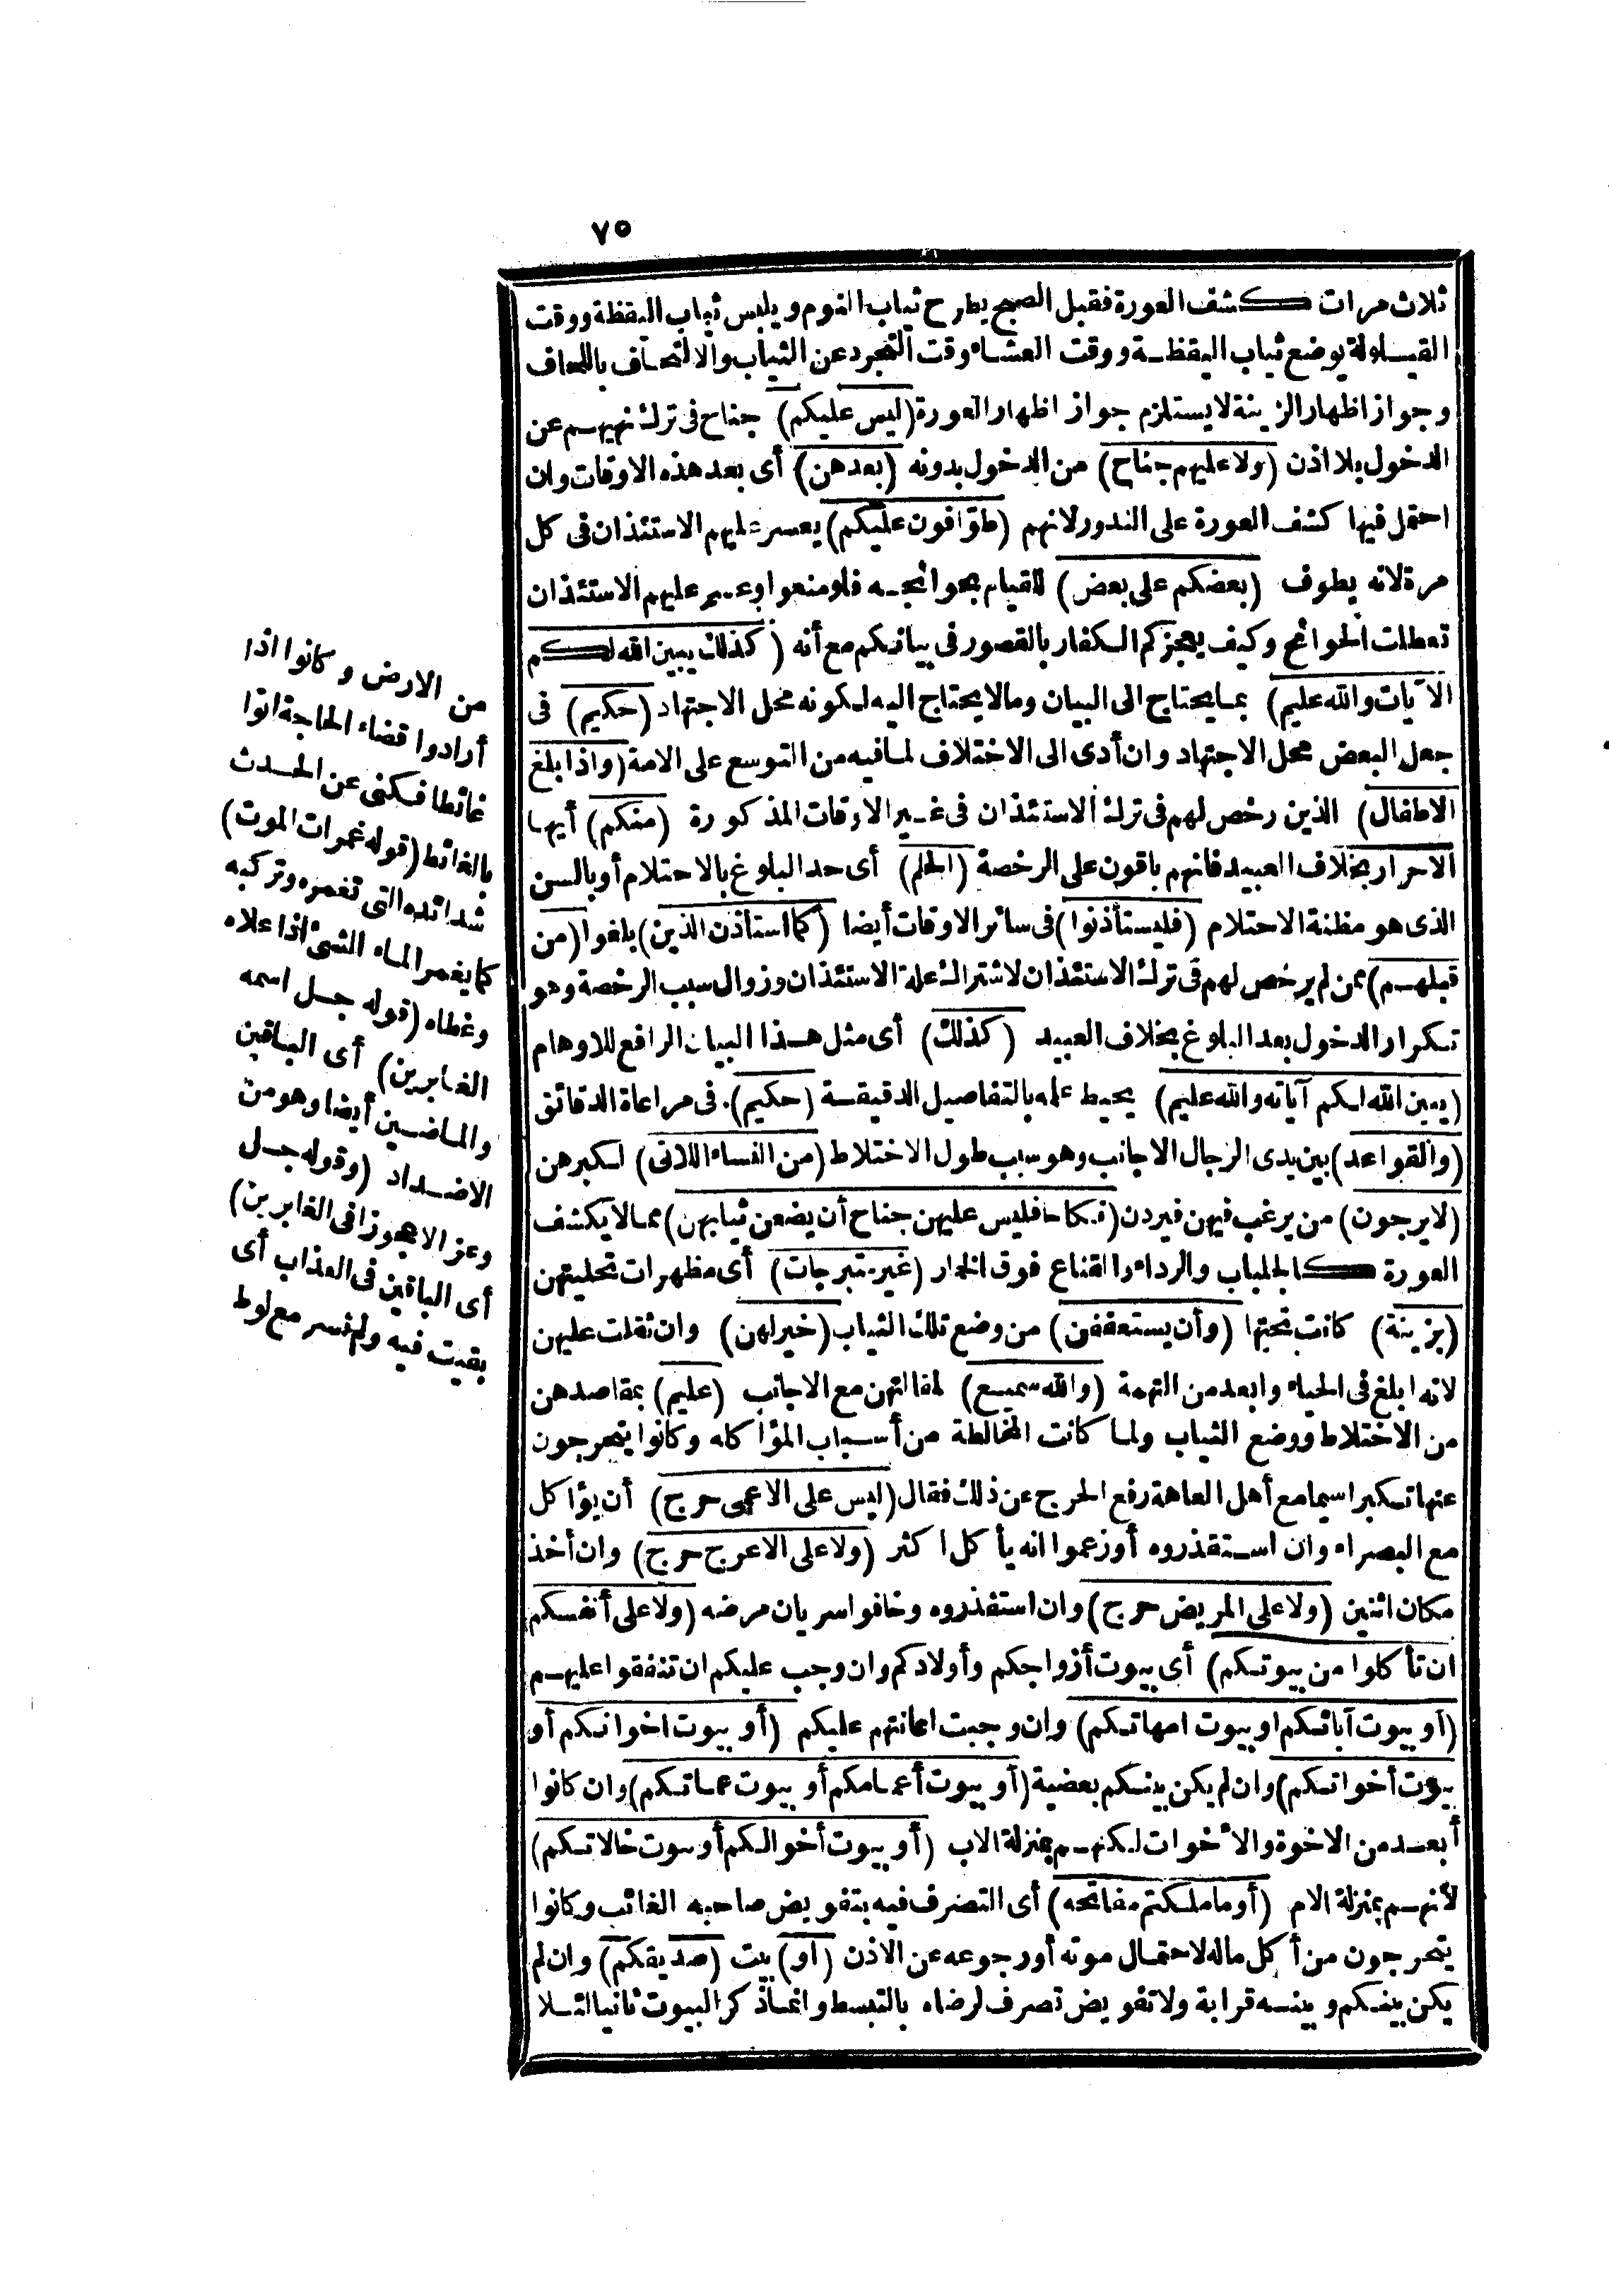 ٧٥
ثلاث مرات كشف العورة فقبل الصبح يطرح ثياب النوم ويلبس ثياب اليقظة ووقت
القيلولة يوضع ثياب اليقظة ووقت العشاء وقت التجرد عن الثياب والالتحاف باللحاف
وجواز اظهار الزينة لا يستلزم جواز اظهار العورة (ليس عليكم) جناح فى ترك نهيهم عن
الدخول بلا اذن (ولا عليهم جناح) من الدخول بدونه (بعدهن) أى بعد هذه الاوقات وان
احتمل فيها كشف العورة على الندور لانهم (طوّافون عليكم) يعسر عليهم الاستئذان فى كل
مرة لانه يطوف (بعضكم على بعض) للقيام بحوائجه فلو منعوا او عسر عليهم الاستئذان
تعطلت الحوائج وكيف يعجزكم الكفار بالقصور فى بيانكم مع أنه (كذلك يبين الله لكم
الآيات والله عليم) بما يحتاج الى البيان وما لا يحتاج اليه لكونه محل الاجتهاد (حكيم) فى
جعل البعض محل الاجتهاد وان أدى الى الاختلاف لما فيه من التوسع على الامة (واذا بلغ
الاطفال) الذين رخص لهم فى ترك الاستئذان فى غير الاوقات المذكورة (منكم) أيها
الاحرار بخلاف العبيد فانهم باقون على الرخصة (الحلم) أى حد البلوغ بالاحتلام أو بالسن
الذى هو مظنة الاحتلام (فليستأذنوا) فى سائر الاوقات أيضا (كما استاذن الذين) بلغوا (من
قبلهم) ممن لم يرخص لهم فى ترك الاستئذان لاشتراك علة الاستئذان وزوال سبب الرخصة وهو
تكرار الدخول بعد البلوغ بخلاف العبيد (كذلك) أى مثل هذا البيان الرافع للاوهام
(يبين الله لكم آياته والله عليم) يحيط علمه بالتفاصيل الدقيقة (حكيم). فى مراعاة الدقائق
(والقواعد) بين يدى الرجال الاجانب وهو سبب طول الاختلاط (من النساء اللاتى) لكبرهن
(لا يرجون) من يرغب فيهن فيردن (نكاحا فليس عليهن جناح أن يضعن ثيابهن) مما لا يكشف
العورة كالجلباب والرداء والقناع فوق الخمار (غير متبرجات) أى مظهرات تحليتهن
(بزينة) كانت تحبتها (وأن يستعففن) من وضع تلك الثياب (خير لهن) وان ثقلت عليهن
لانه ابلغ فى الحياء وابعد من التهمة (والله سميع) لمقالتهن مع الاجانب (عليم) بمقاصدهن
من الاختلاط ووضع الثياب ولما كانت المخالطة من أسباب المؤاكله وكانوا يتحرجون
عنها تكبرا سيما مع أهل العاهة رفع الحرج عن ذلك فقال (ليس على الاعمى حرج) أن يؤاكل
مع البصراء وان استقذروه أو زعموا انه يأكل اكثر (ولا على الاعرج حرج) وان أخذ
مكان اثنين (ولا على المريض حرج) وان استقذروه وخافوا سريان مرضه (ولا على أنفسكم
ان تأكلوا من بيوتكم) أى بيوت أزواجكم وأولادكم وان وجب عليكم ان تنفقوا عليهم
(أو بيوت آبائكم او بيوت امهاتكم) وان وجبت اعانتهم عليكم (أو بيوت اخوانكم أو
بيوت أخواتكم) وان لم يكن بينكم بعضية (أو بيوت أعمامكم أو بيوت عماتكم) وان كانوا
أبعد من الاخوة والأخوات لكنهم بمنزلة الاب (أو بيوت أخوالكم أو بيوت خالاتكم)
لأنهم بمنزلة الام (أو ما ملكتم مفاتحه) أى التصرف فيه بتفويض صاحبه الغائب وكانوا
يتحرجون من أكل ماله لاحتمال موته أو رجوعه عن الاذن (أو) بيت (صديقكم) وان لم
يكن بينكم وبينه قرابة ولا تفويض تصرف لرضاه بالتبسط وانما ذكر البيوت ثانيا لئلا
من الارض وكانوا اذا
أرادوا قضاء الحاجة اتوا
غائطا فكنى عن الحدث
بالغائط (قوله غمرات الموت)
شدائده التى تغمره وتركبه
كما يغمر الماء الشئ اذا علاه
وغطاه (قوله جل اسمه
الغابرين) أى الباقين
والماضين أيضا وهو من
الاضداد (وقوله جل
وعز الا عجوزا فى الغابرين)
أى الباقين فى العذاب أى
بقيت فيه ولم تسر مع لوط